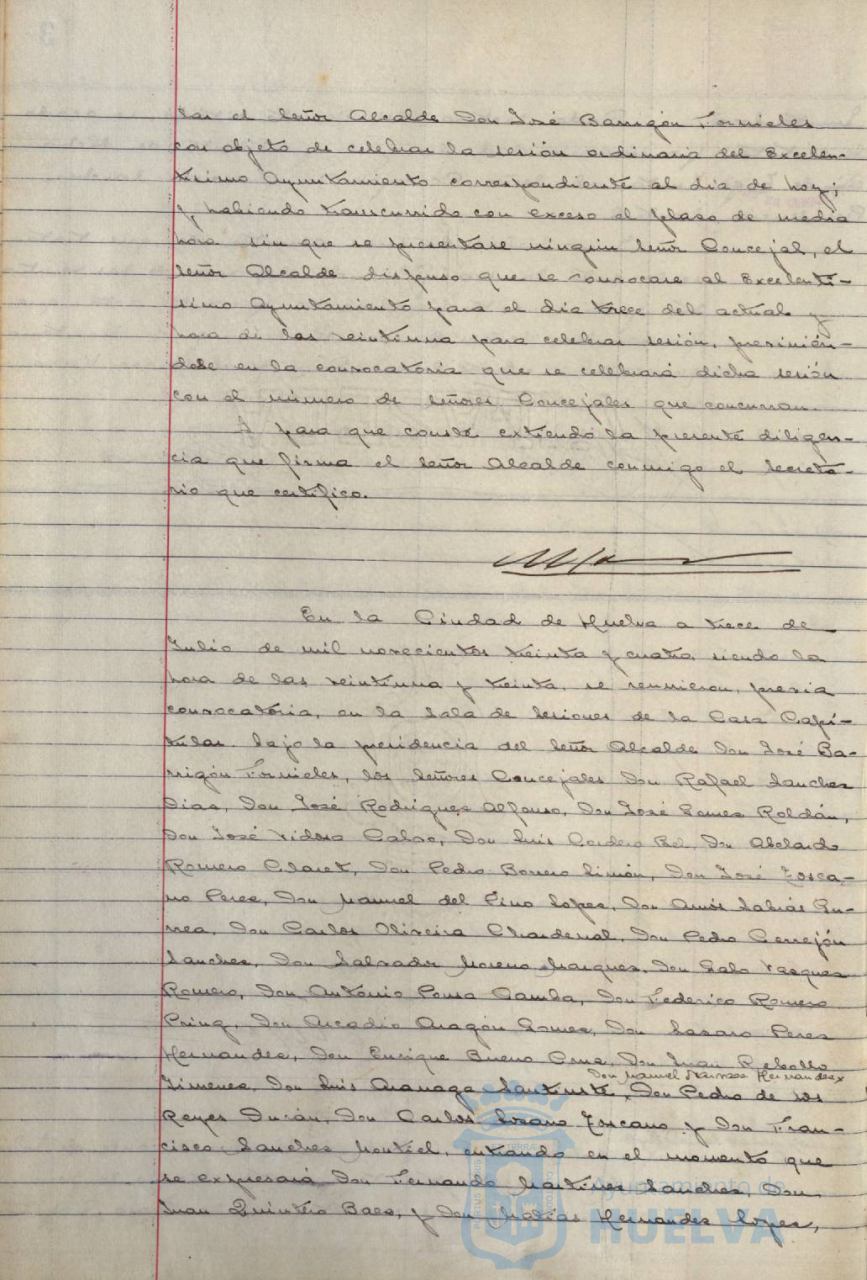 lar el Señor Alcalde Don José Barrigón Fornieles
con objeto de celebrar la sesión ordinaria del Excelen-
tísimo Ayuntamiento correspondiente al dia de hoy;
y, habiendo transcurrido con exceso el plazo de media
hora sin que se presentase ningún Señor Concejal, el
Señor Alcalde dispuso que se convocase al Excelentí-
simo Ayuntamiento para el dia trece del actual y
hora de las veintiuna para celebrar sesión, previnién-
dose en la convocatoria que se celebrará dicha sesión
con el número de Señores Concejales que concurran.
Y para que conste extiendo la presente diligen-
cia que firma el Señor Alcalde conmigo el Secreta-
rio que certifico.
En la Ciudad de Huelva a trece de
Julio de mil novecientos treinta y cuatro, siendo la
hora de las veintiuna y treinta, se reunieron, previa
convocatoria, en la Sala de Sesiones de la Casa Capi-
tular bajo la presidencia del Señor Alcalde Don José Ba-
rrigón Fornieles, los Señores Concejales Don Rafael Sanchez
Diaz, Don José Rodriguez Alfonso, Don José Gomez Roldán,
Don José Vidosa Calvo, Don Luis Cordero Bel, Don Abelardo
Romero Claret, Don Pedro Borrero Limón, Don José Tosca-
no Perez, Don Manuel del Pino Lopez, Don Amós Sabrás Gu-
rrea, Don Carlos Oliveira Chardenal, Don Pedro Cerrejón
Sanchez, Don Salvador Moreno Marquez, Don Galo Vazquez
Romero, Don Antonio Pousa Camba, Don Federico Romero
Don Arcadio Aragón Gomez, Don Lazaro Perez
Hernandez, Don Enrique Bueno Cruz, Don Juan Rebollo
Don Manuel Hernandez
Jimenez, Don Luis Don Pedro de los
Reyes Durán, Don Carlos Lozano Toscano y Don Fran-
cisco Sanchez Montiel, entrando en el momento que
se expresará Don Fernando Martinez Sanchez, Don
Juan Quintero Baez, y Don Matías Hernandez Lopez,
Ayuntamiento de
HUELVA